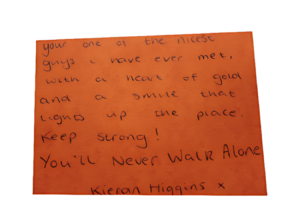 your one of the nicest
guys i have ever met,
with a heart of gold
and a smile that
lights up the place.
Keep strong!
You'll Never Walk Alone
Kieran Higgins x